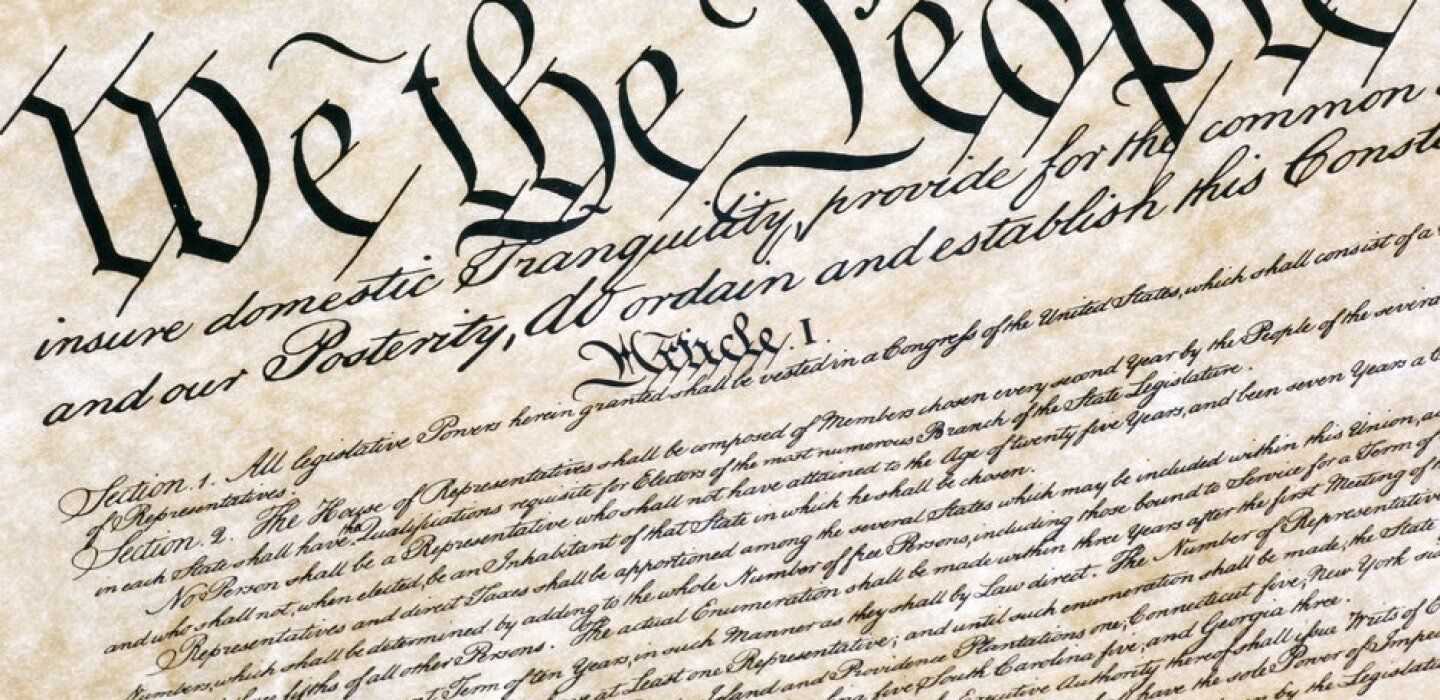 We the People
insure domestic Tranquility, provide for the common
and our Posterity, do ordain and establish this Const
Article. I.
Section. 1. All legislative Powers herein granted shall be vested in a Congress of the United States, which shall consist of a
of Representatives.
Section. 2. The House of Representatives shall be composed of Members chosen every second Year by the People of the several
in each State shall have the Qualifications requisite for Electors of the most numerous Branch of the State Legislature.
No Person shall be a Representative who shall not have attained to the Age of twenty five Years, and been seven Years a
and who shall not, when elected, be an Inhabitant of that State in which he shall be chosen.
Representatives and direct Taxes shall be apportioned among the several States which may be included within this Union, ac
Numbers, which shall be determined by adding to the whole Number of free Persons, including those bound to Service for a Term of
fifths of all other Persons. The actual Enumeration shall be made within three Years after the first Meeting of
Term of ten Years, in such Manner as they shall by Law direct. The Number of Representatives
at Least one Representative; and until such enumeration shall be made, the State
Island and Providence Plantations one, Connecticut five, New York
five, South Carolina five, and Georgia three.
Executive Authority thereof shall issue Writs of
have the sole Power of Impe
by the Legislature